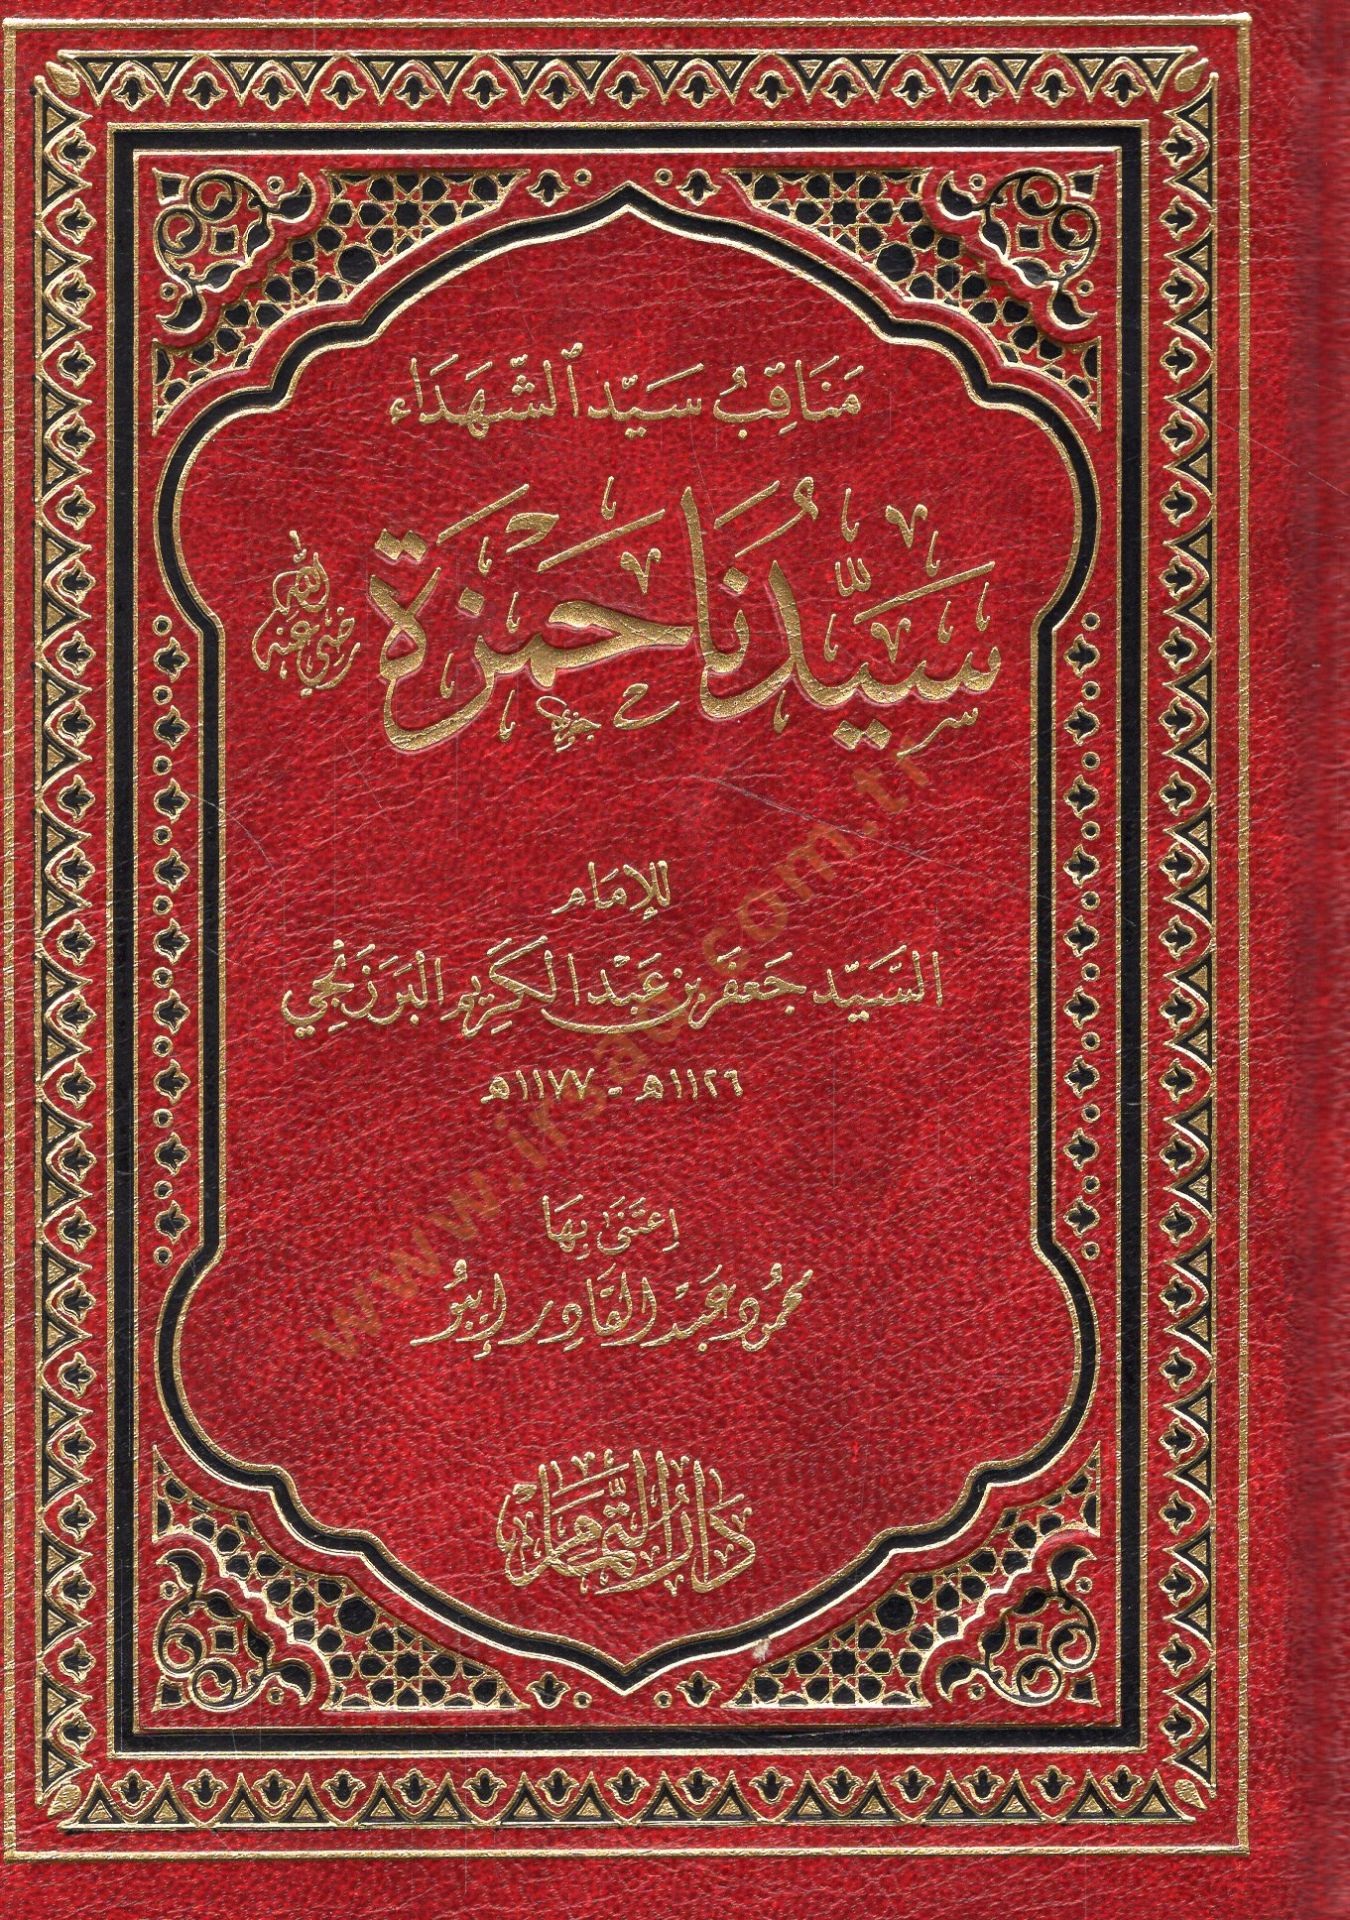 مَنَاقِبُ سَيِّد ٱلشُّهَدَاء
سَيِّدُنَا حَمْزَة
رضي الله عنه
للإِمَام
السَّيِّد جَعفَر بن عَبْد الكَرِيم البَرزَنجي
١١٢٦هـ - ١١٧٧هـ
اِعتَنَى بِهَا
محمُود عَبْد القَادِر إيبُو
دَارُ
www.irsad.com.tr